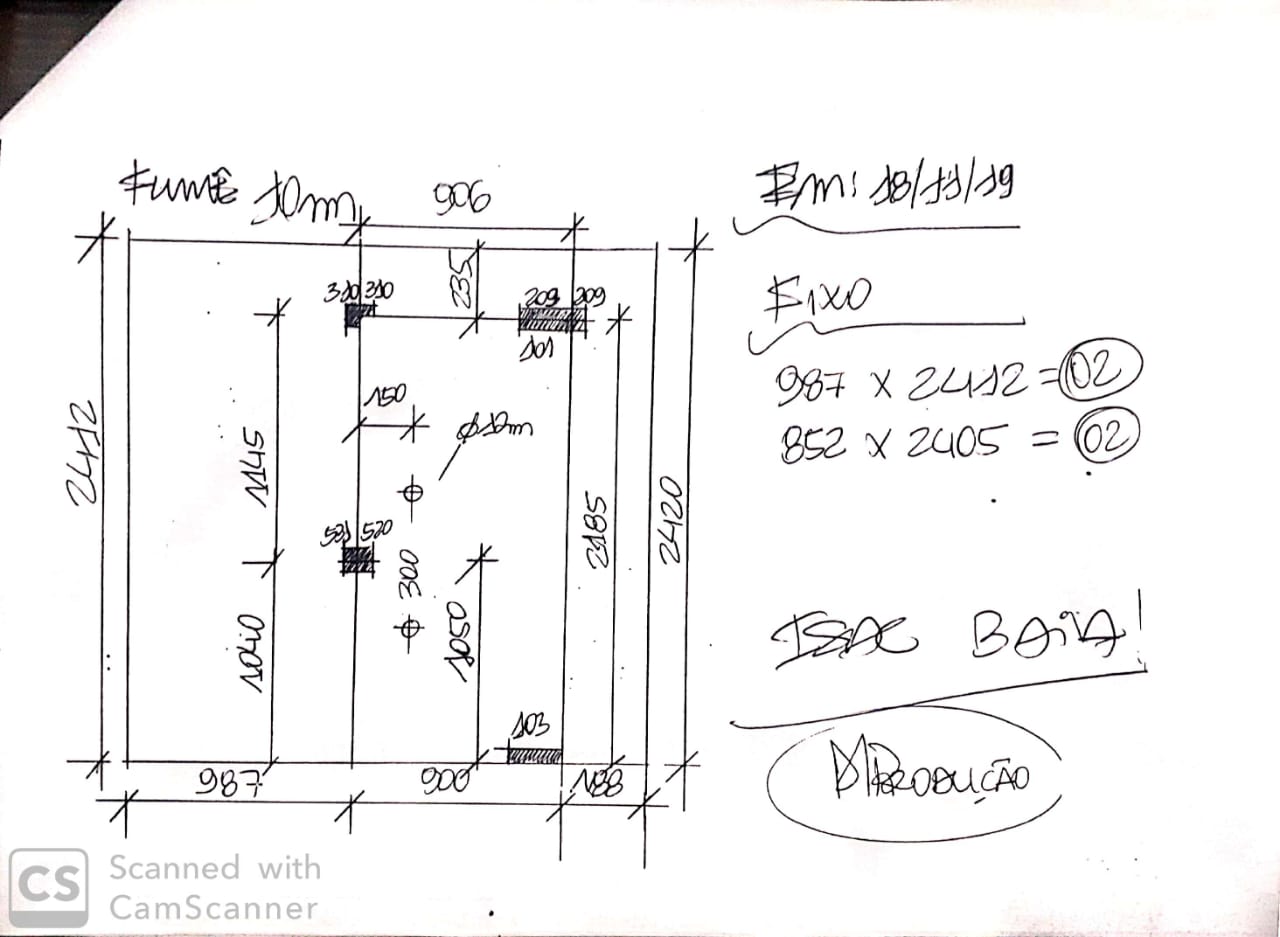 Fumê 10m
906
Em: 18/11/19
235
310 310
209 209
101
Fixo
987 x 2412 = 02
852 x 2405 = 02
150
Ø12m
2412
1145
2185
2420
531 520
300
1040
1050
103
ISAC BAIA!
PRODUÇÃO
987
900
188
CS Scanned with
CamScanner